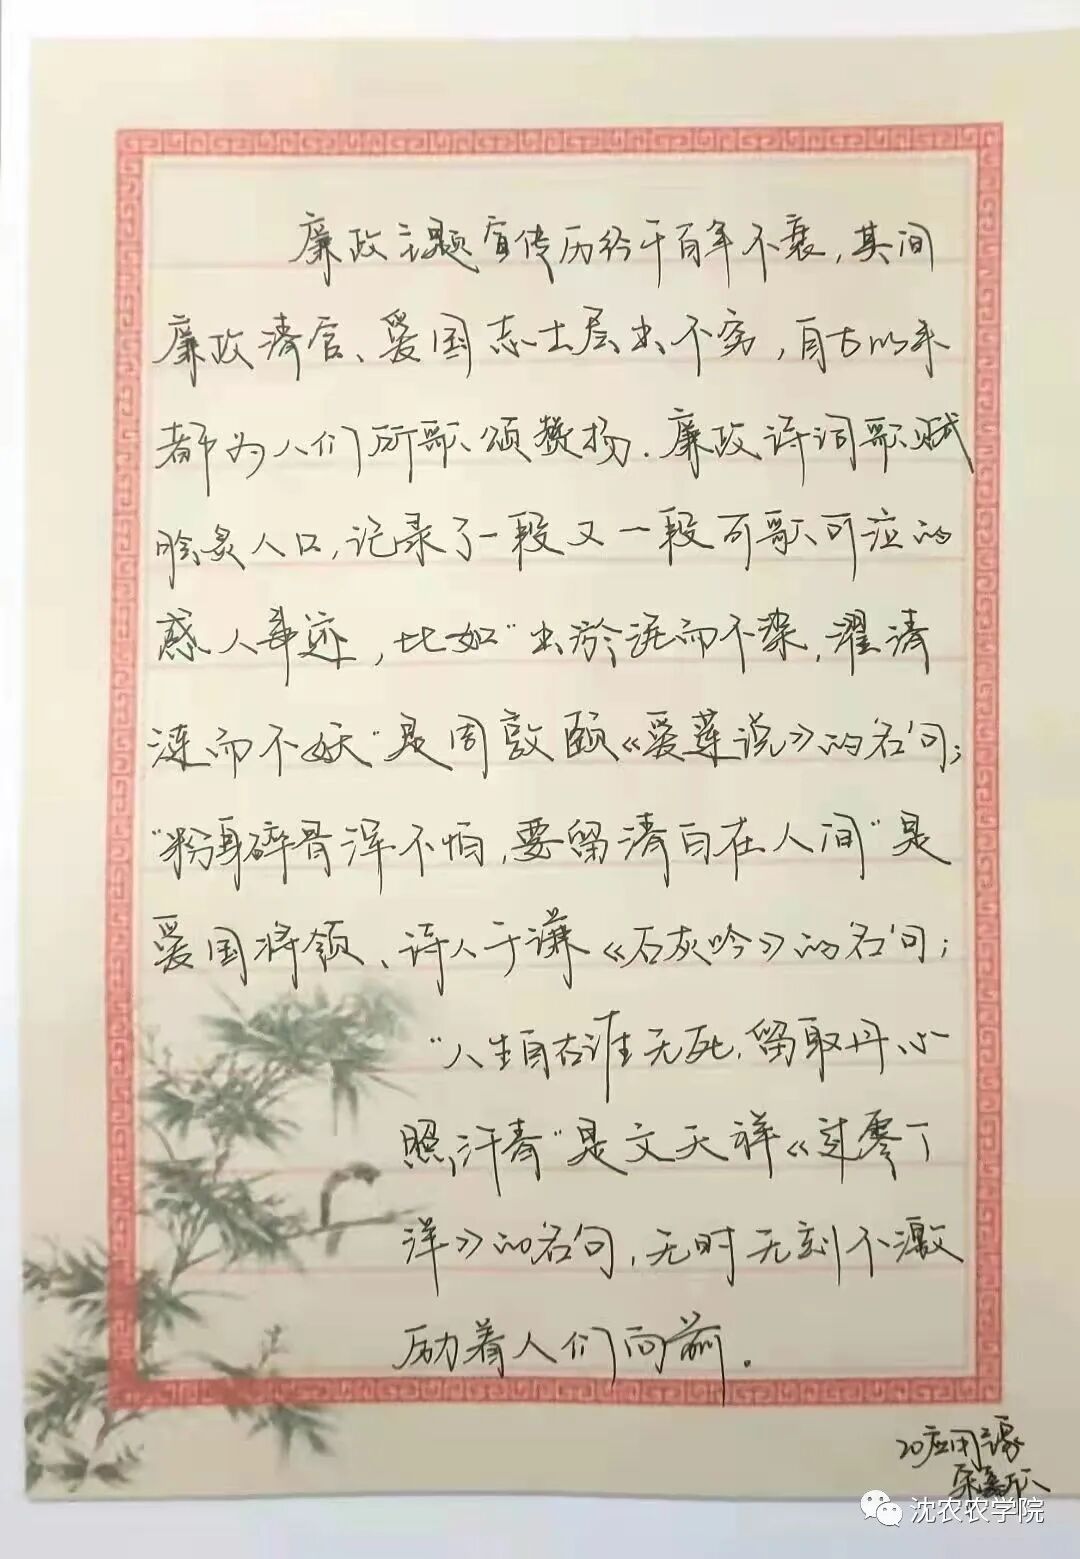 廉政主题宣传历经千百年不衰，其间
廉政清官、爱国志士层出不穷，自古以来
都为人们所歌颂赞扬．廉政诗词歌赋
脍炙人口，记录了一段又一段可歌可泣的
感人事迹，比如"出淤泥而不染，濯清
涟而不妖"是周敦颐《爱莲说》的名句；
"粉身碎骨浑不怕，要留清白在人间"是
爱国将领、诗人于谦《石灰吟》的名句；
"人生自古谁无死，留取丹心
照汗青"是文天祥《过零丁
洋》的名句，无时无刻不激
励着人们向前．
20应用
沈农农学院